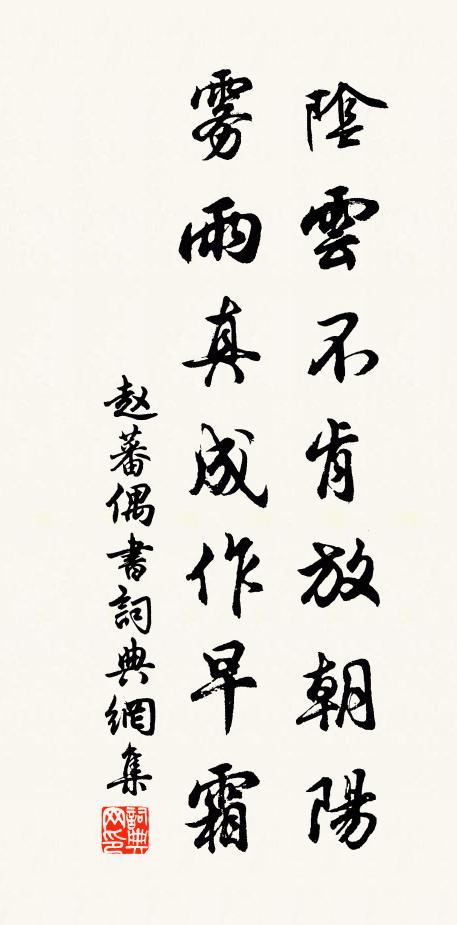 陰雲不肯放朝陽
雾雨真成作早霜
赵蕃偶書詞典網集
詞典
网印